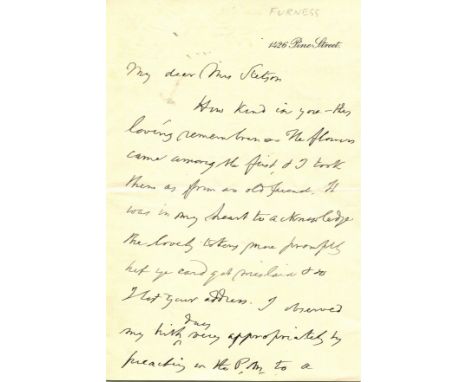 FURNESS
1426 Pine Street.
My dear Mrs Stetson
How kind in you - this
loving remembrance. The flowers
came among the first, & I took
them as from an old friend. It
was in my heart to acknowledge
the lovely token more promptly
but ye card got mislaid & so
I lost your address. I observed
my birth day very appropriately by
preaching in the P.M. to a